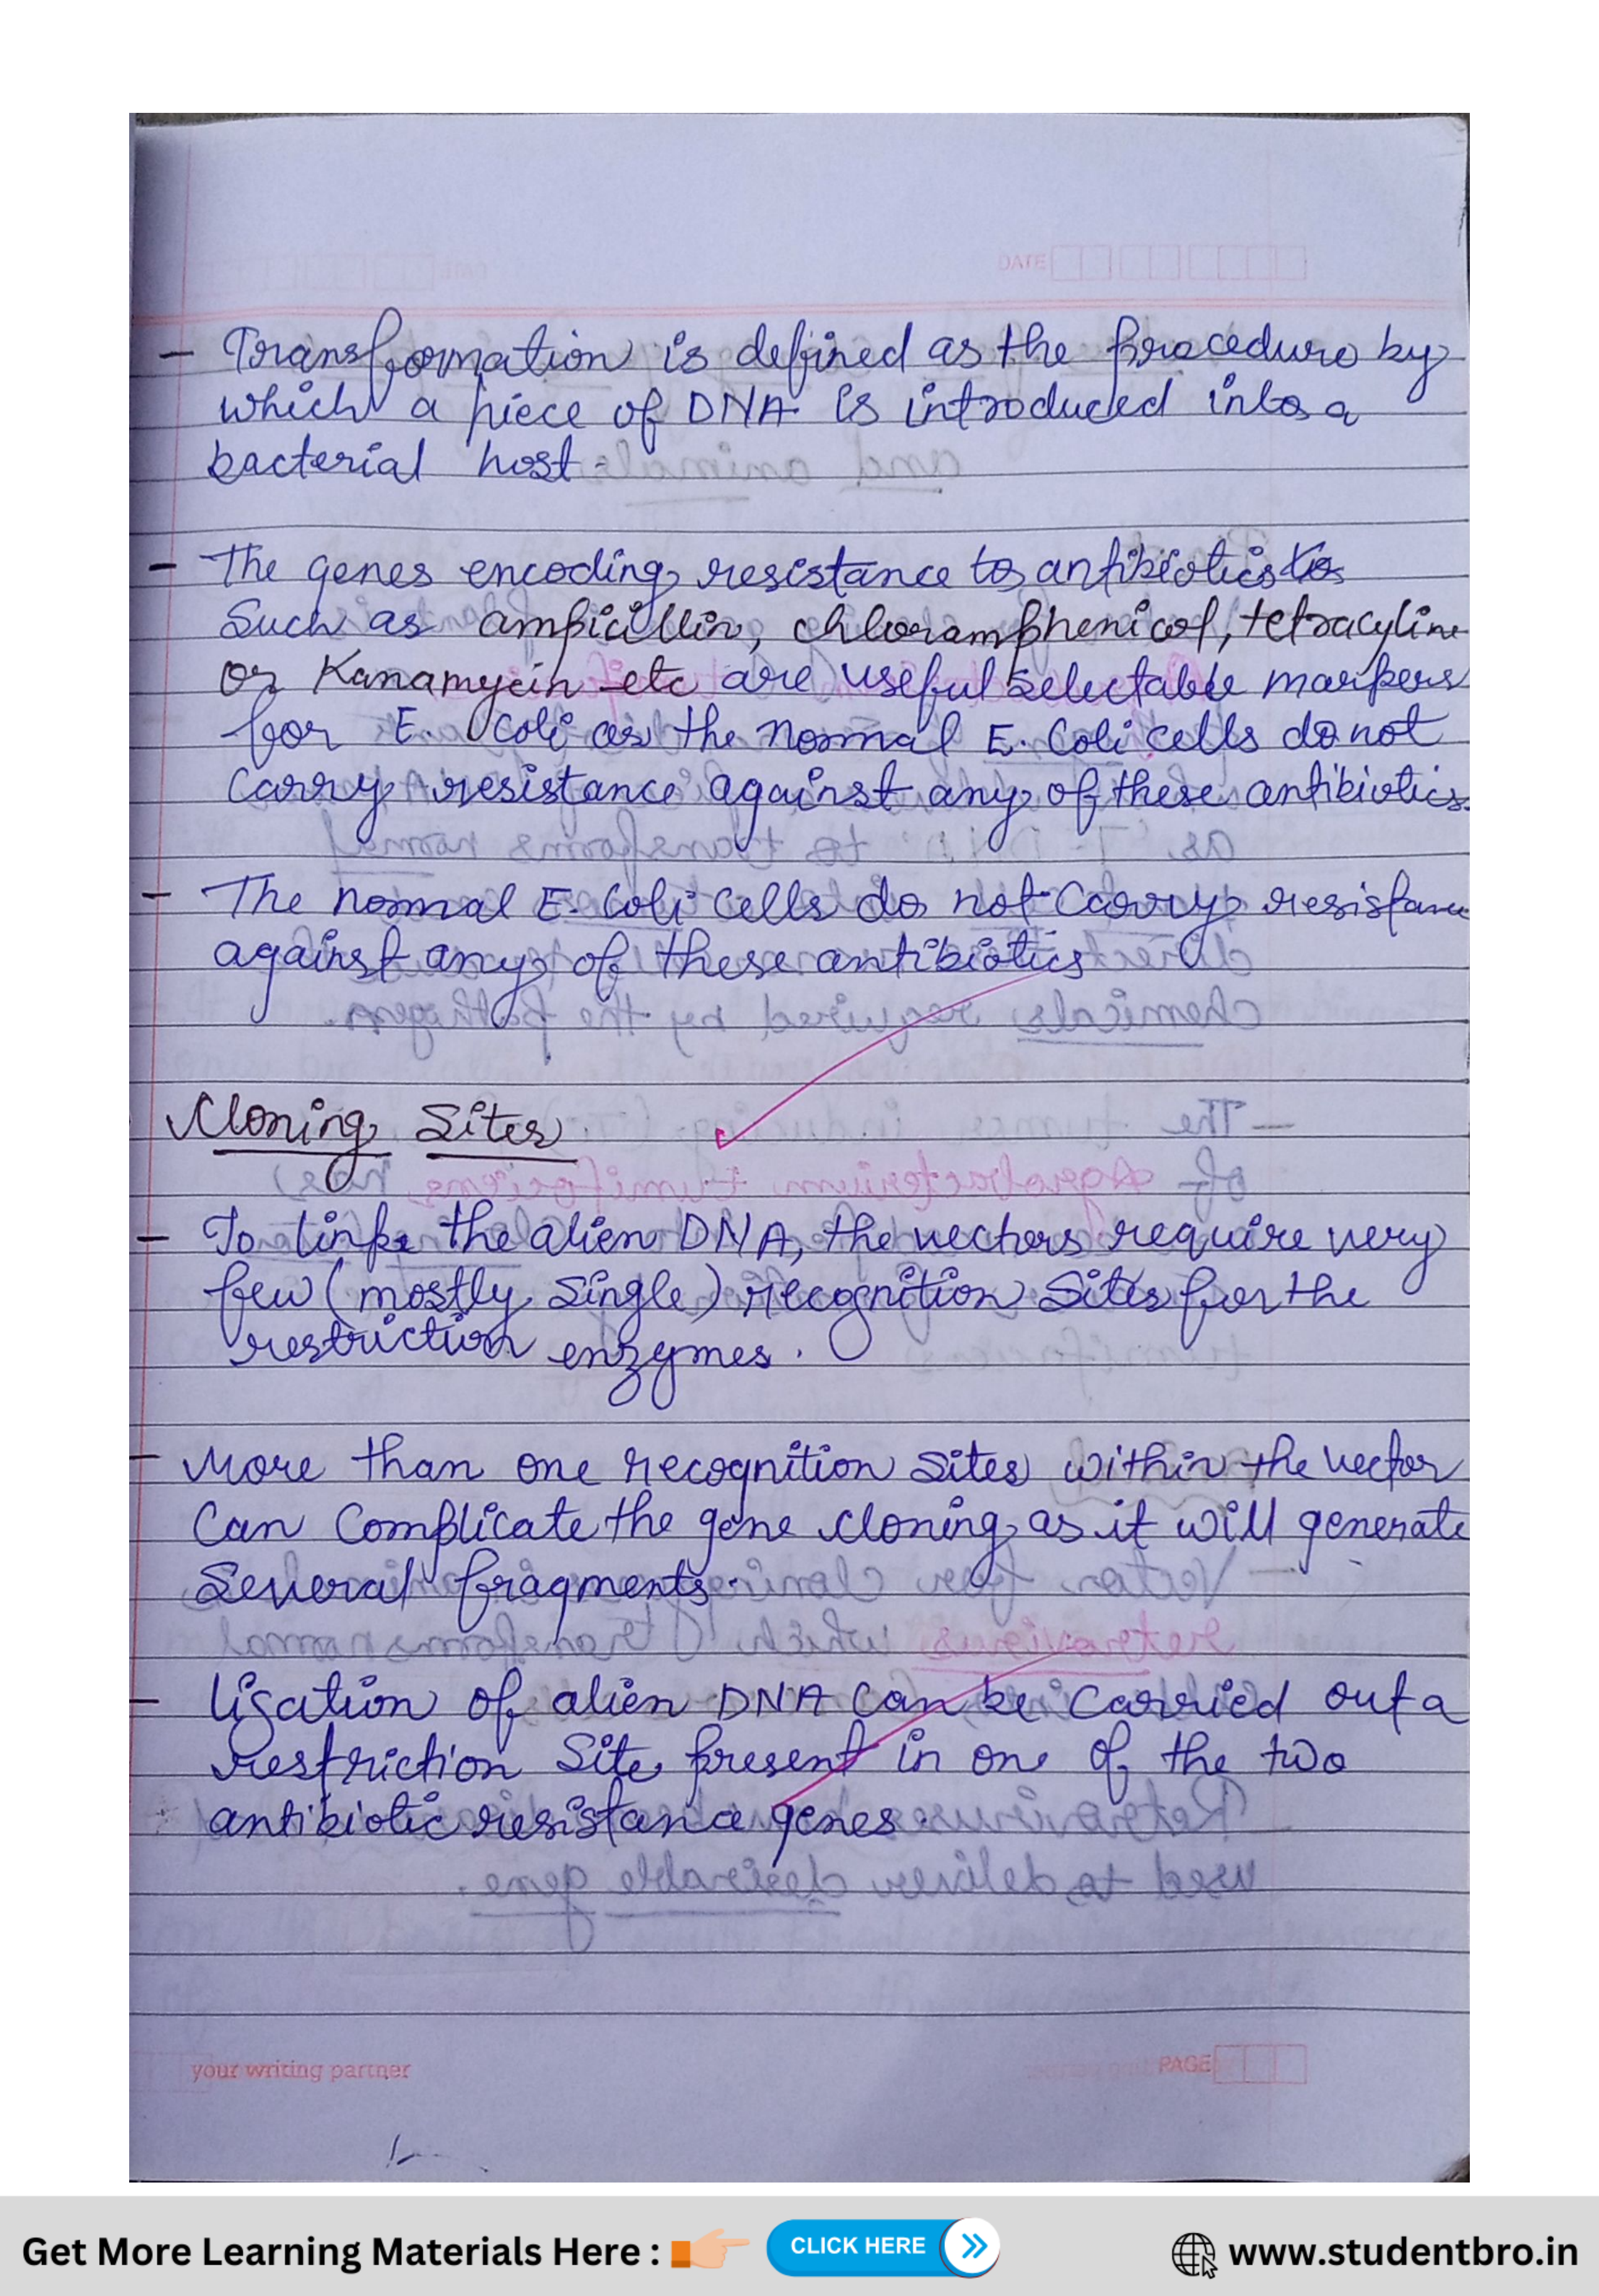 DATE
- Transformation is defined as the procedure by
which a piece of DNA is introduced into a
bacterial host.
- The genes encoding resistance to antibiotics to
Such as ampicillin, chloramphenicol, tetracyline
or Kanamycin etc are useful selectable markers
for E. Coli as the normal E. Coli cells do not
carry resistance against any of these antibiotics.
- The normal E. Coli Cells do not Carry resistance
against any of these antibiotics
Cloning Sites
- To link the alien DNA, the vectors require very
few (mostly single) recognition Sites for the
restriction enzymes.
- More than one recognition Sites within the vector
Can Complicate the gene cloning as it will generate
Several fragments.
- ligation of alien DNA Can be Carried out a
restriction Site present in one of the two
antibiotic resistance genes.
your writing partner
PAGE
Get More Learning Materials Here :
CLICK HERE
www.studentbro.in